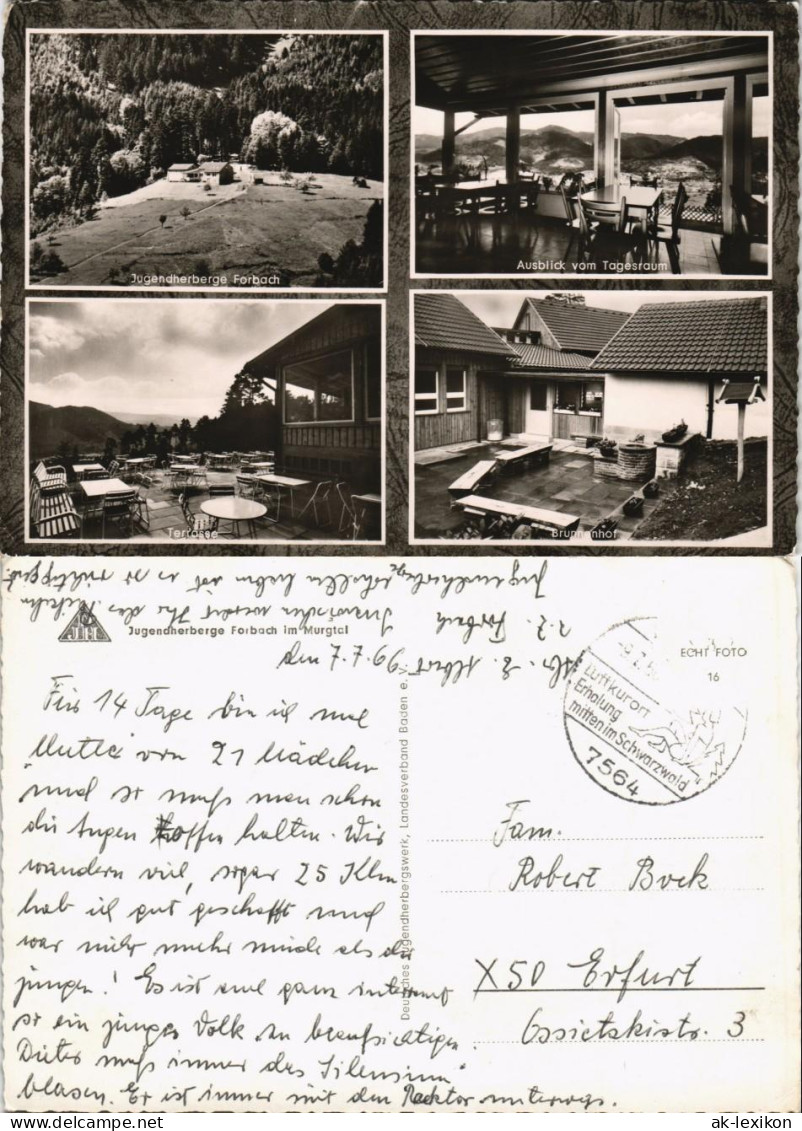 Jugendherberge Forbach
Ausblick vom Tagesraum
Terrasse
Brunnenhof
Jugendherberge
7.7. Forbach
Jugendherberge Forbach im Murgtal
ECHT FOTO
16
Luftkurort
Erholung
mitten im Schwarzwald
7564
Deutsches Jugendherbergswerk, Landesverband Baden e. V.
den 7.7.69
Für 14 Tage bin ich mal
"Mutti" von 21 Mädchen
und so muß man schon
die Augen offen halten. Wir
wandern viel, sogar 25 Klm
hab ich gut geschafft und
war nicht mehr müde als die
jungen! Es ist mal ganz interessant
so ein junges Volk zu beaufsichtigen.
Dieter muß immer das "Silenzium"
blasen. Er ist immer mit dem Rektor unterwegs.
Fam.
Robert Bock
X50 Erfurt
Ossietzkistr. 3
ak-lexikon.com